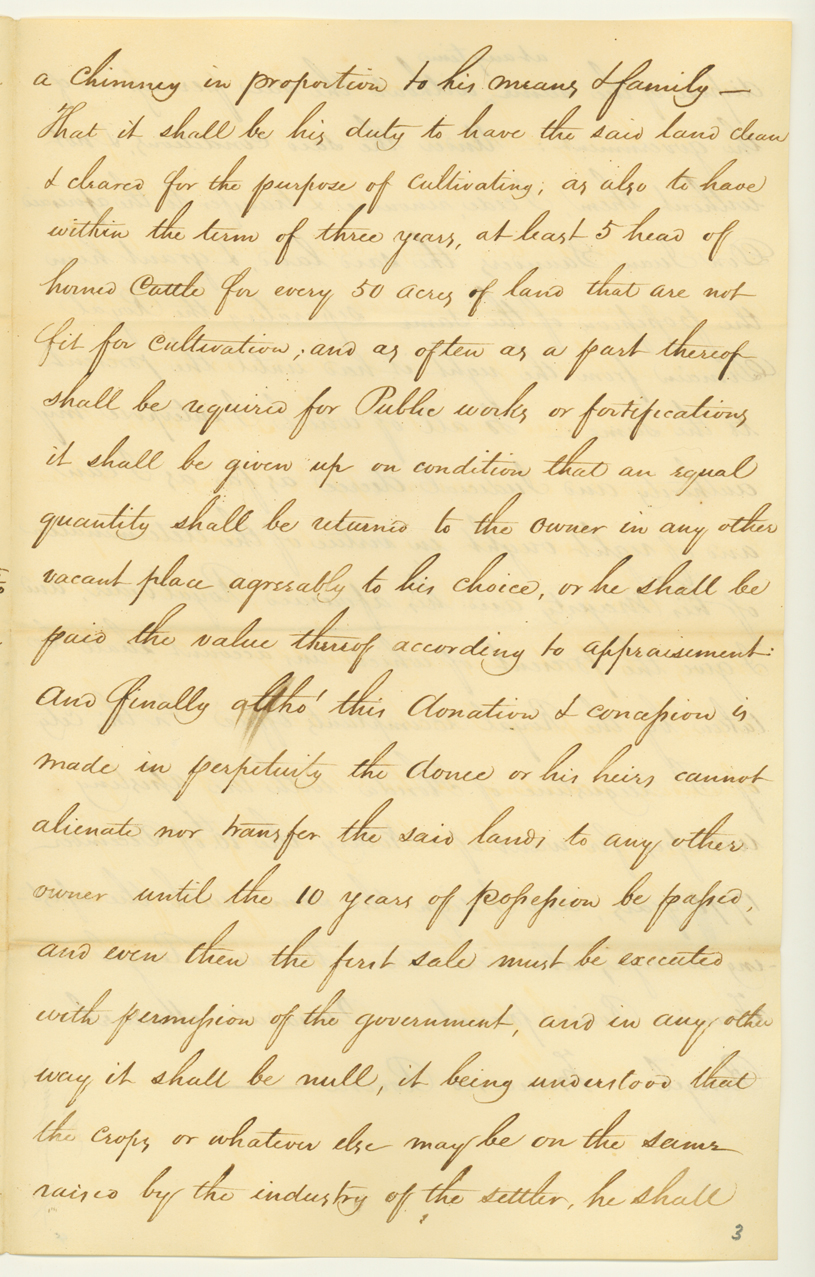 a chimney in proportion to his means & family —
That it shall be his duty to have the said land clean
& cleared for the purpose of cultivating; as also to have
within the term of three years, at least 5 head of
horned Cattle for every 50 acres of land that are not
fit for cultivation; and as often as a part thereof
shall be required for Public works or fortifications
it shall be given up on condition that an equal
quantity shall be returned to the owner in any other
vacant place agreeably to his choice, or he shall be
paid the value thereof according to appraisement:
And finally altho' this donation & concession is
made in perpetuity the donee or his heirs cannot
alienate nor transfer the said lands to any other
owner until the 10 years of possession be passed,
and even then the first sale must be executed
with permission of the government, and in any other
way it shall be null, it being understood that
the crops or whatever else may be on the same
raised by the industry of the settler, he shall
3